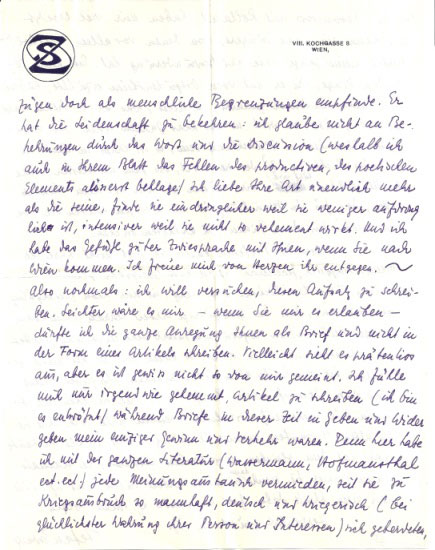 SZ
VIII. KOCHGASSE 8
WIEN,
zügen doch als menschliche Begrenzungen empfinde. Er
hat die Leidenschaft zu bekehren: ich glaube nicht an Be-
kehrungen durch das Wort und die Discussion (weshalb ich
auch in Ihrem Blatt das Fehlen des productiven, des poetischen
Elements äusserst beklage) ich liebe Ihre Art unendlich mehr
als die seine, finde sie eindringlicher weil sie weniger aufdring
lich ist, intensiver weil sie nicht so vehement wirkt. Und ich
habe das Gefühl guter Zwiesprache mit Ihnen, wenn Sie nach
Wien kommen. Ich freue mich von Herzen ihr entgegen. ~
Also nochmals: ich will versuchen, diesen Aufsatz zu schrei-
ben. Leichter wäre es mir – wenn Sie mir es erlauben –
dürfte ich die ganze Anregung Ihnen als Brief und nicht in
der Form eines Artikels schreiben. Vielleicht sieht es prätentiös
aus, aber es ist gewiss nicht so von mir gemeint. Ich fühle
mich nur irgendwie gehemmt, Artikel zu schreiben (ich bin
es entwöhnt) während Briefe in dieser Zeit in Geben und Wider
geben mein einziger Gewinn und Verkehr waren. Denn hier habe
ich mit der ganzen Literatur (Wassermann, Hofmannsthal
ect. ect.) jede Meinungsaustausch vermieden, seit sie zu
Kriegsausbruch so mannhaft, deutsch und kriegerisch (bei
glücklichster Wahrung ihrer Person und Interessen) sich geberdeten,